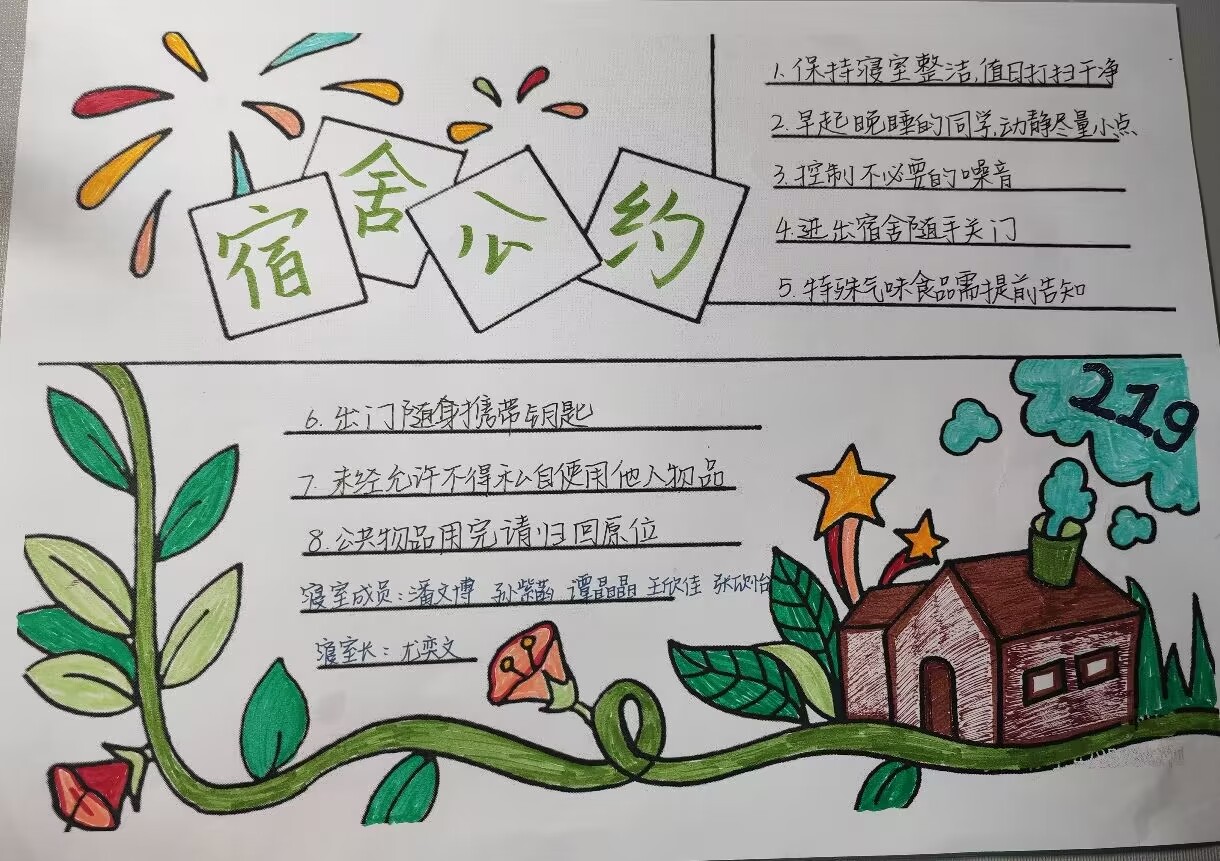 宿舍公约
1.保持寝室整洁,值日打扫干净
2.早起晚睡的同学,动静尽量小点
3.控制不必要的噪音
4.进出宿舍随手关门
5.特殊气味食品需提前告知
219
6.出门随身携带钥匙
7.未经允许不得私自使用他人物品
8.公共物品用完请归回原位
寝室成员:潘文博 孙紫菡 谭晶晶 王欣佳 张欣怡
寝室长:尤奕文